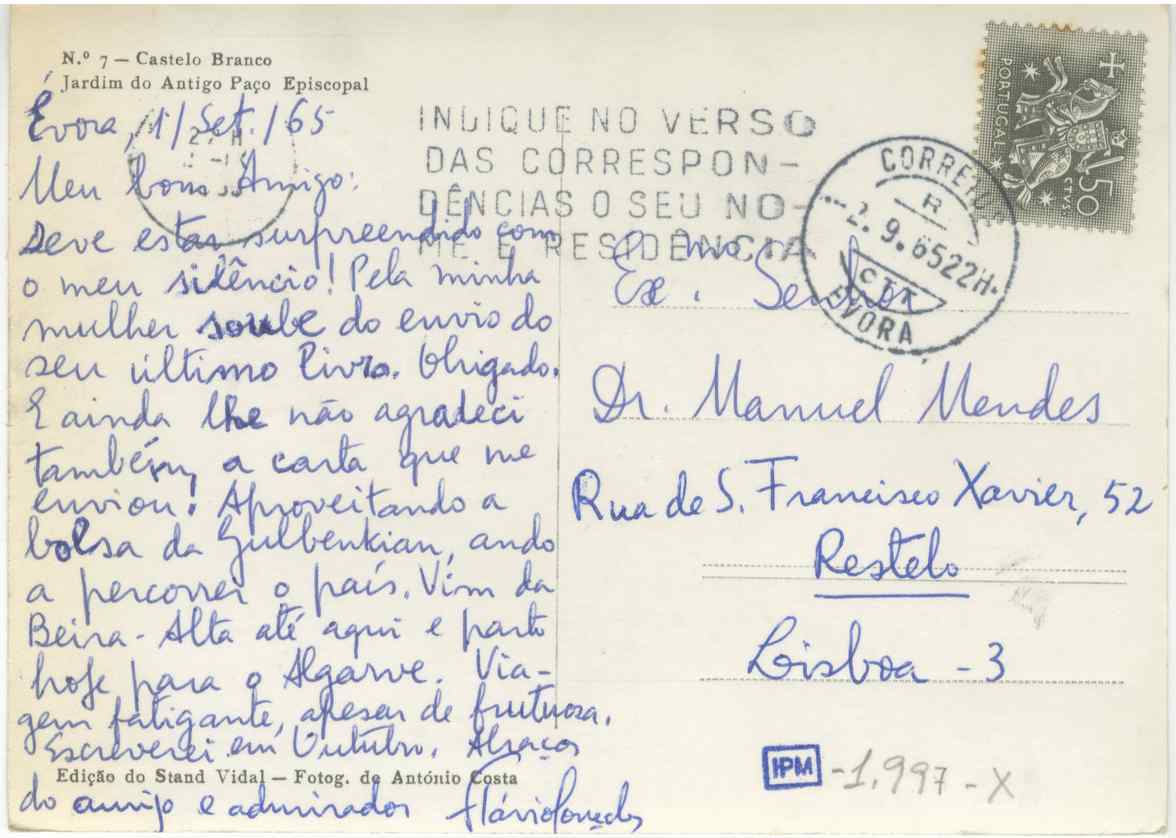 N.º 7 — Castelo Branco
Jardim do Antigo Paço Episcopal
Évora, 1/Set./65
Meu bom Amigo:
Deve estar surpreendido com
o meu silêncio! Pela minha
mulher soube do envio do
seu último livro. Obrigado.
E ainda lhe não agradeci
também a carta que me
enviou! Aproveitando a
bolsa da Gulbenkian, ando
a percorrer o país. Vim da
Beira-Alta até aqui e parto
hoje para o Algarve. Via-
gem fatigante, apesar de frutuosa.
Escreverei em Outubro. Abraços
Edição do Stand Vidal — Fotog. de António Costa
do amigo e admirador
INDIQUE NO VERSO
DAS CORRESPON-
DÊNCIAS O SEU NO-
ME E RESIDÊNCIA
CORREIOS
R
-2.9.65 22H.
CTT
EVORA
PORTUGAL
CTVS
50
Ex.mo Senhor
Dr. Manuel Mendes
Rua de S. Francisco Xavier, 52
Restelo
Lisboa - 3
IPM -1.997-X